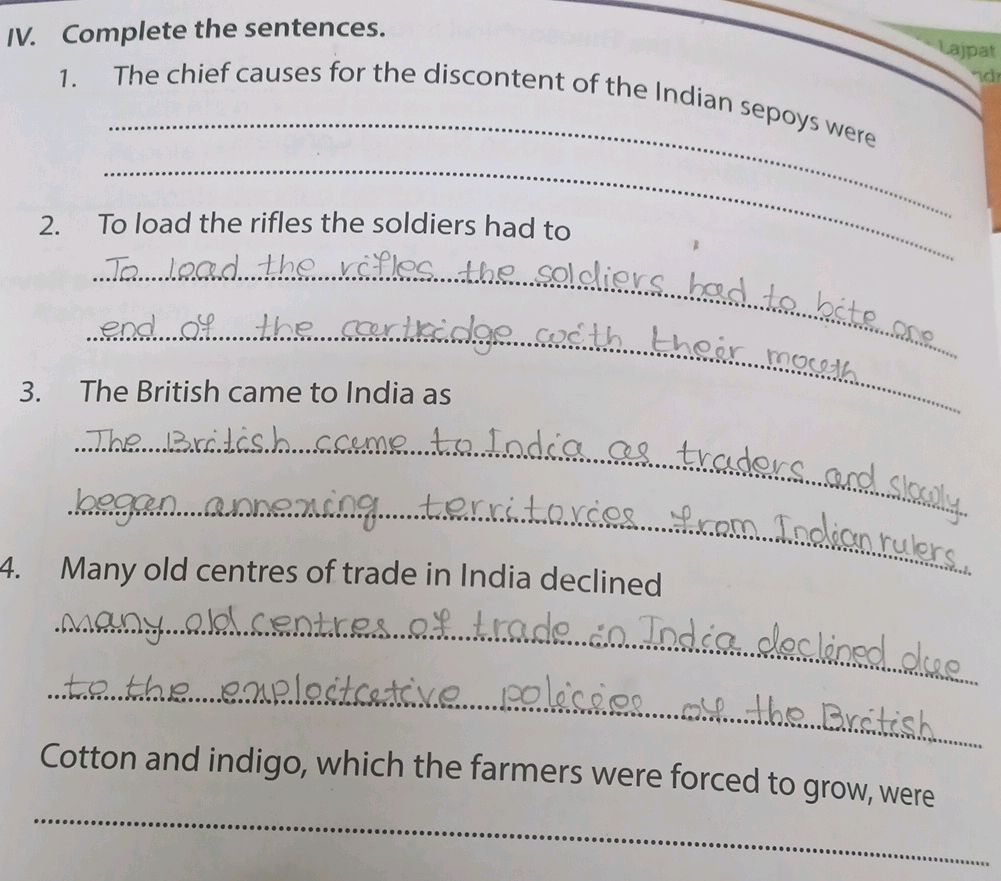 IV. Complete the sentences.
Lajpat
1. The chief causes for the discontent of the Indian sepoys were
2. To load the rifles the soldiers had to
To load the rifles the soldiers had to bite one
end of the cartridge with their mouth
3. The British came to India as
The British came to India as traders and slowly
began annexing territories from Indian rulers.
4. Many old centres of trade in India declined
Many old centres of trade in India declined due
to the exploitative policies of the British
Cotton and indigo, which the farmers were forced to grow, were